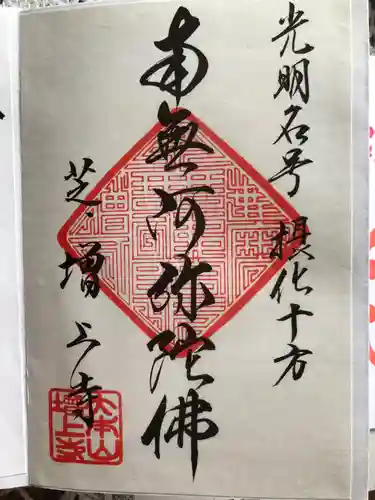 光明名号 摂化十方
南無阿弥陀佛
芝・増上寺
三縁山
増上寺